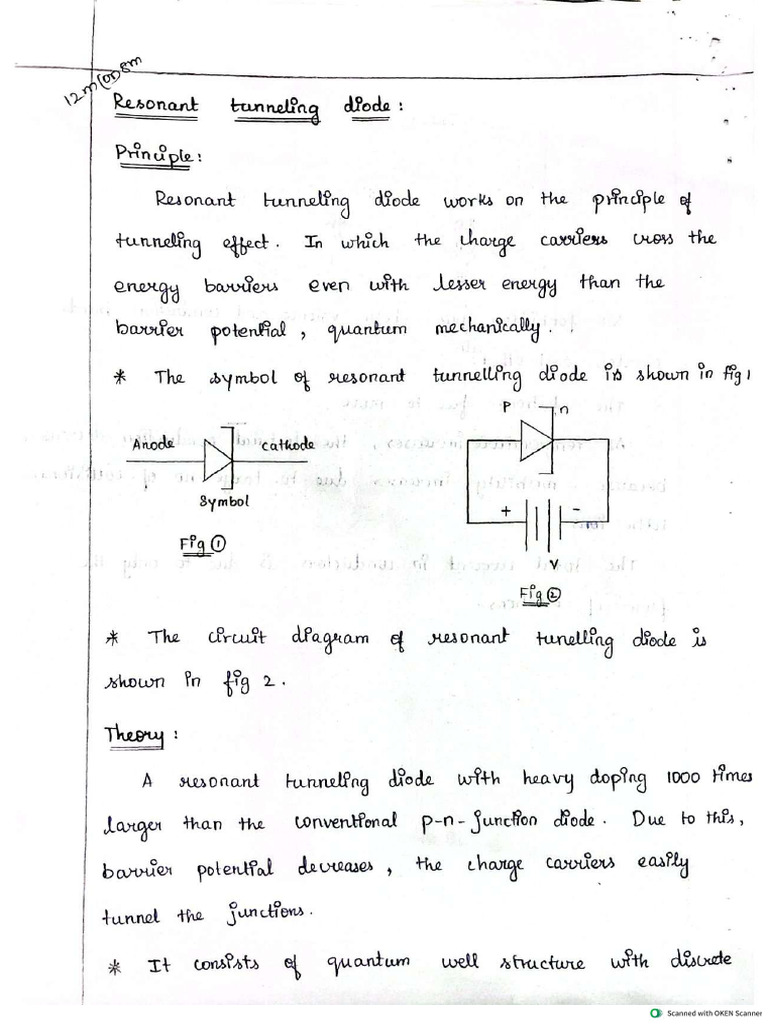 12m(or)8m
Resonant tunneling diode :
Principle :
Resonant tunneling diode works on the principle of
tunneling effect. In which the charge carriers cross the
energy barriers even with lesser energy than the
barrier potential, quantum mechanically.
* The symbol of resonant tunnelling diode is shown in fig 1
P n
Anode cathode
Symbol
+ -
Fig ①
V
Fig ②
* The circuit diagram of resonant tunelling diode is
shown in fig 2.
Theory :
A resonant tunneling diode with heavy doping 1000 times
larger than the conventional p-n-junction diode. Due to this,
barrier potential decreases, the charge carriers easily
tunnel the junctions.
* It consists of quantum well structure with discrete
Scanned with OKEN Scanner